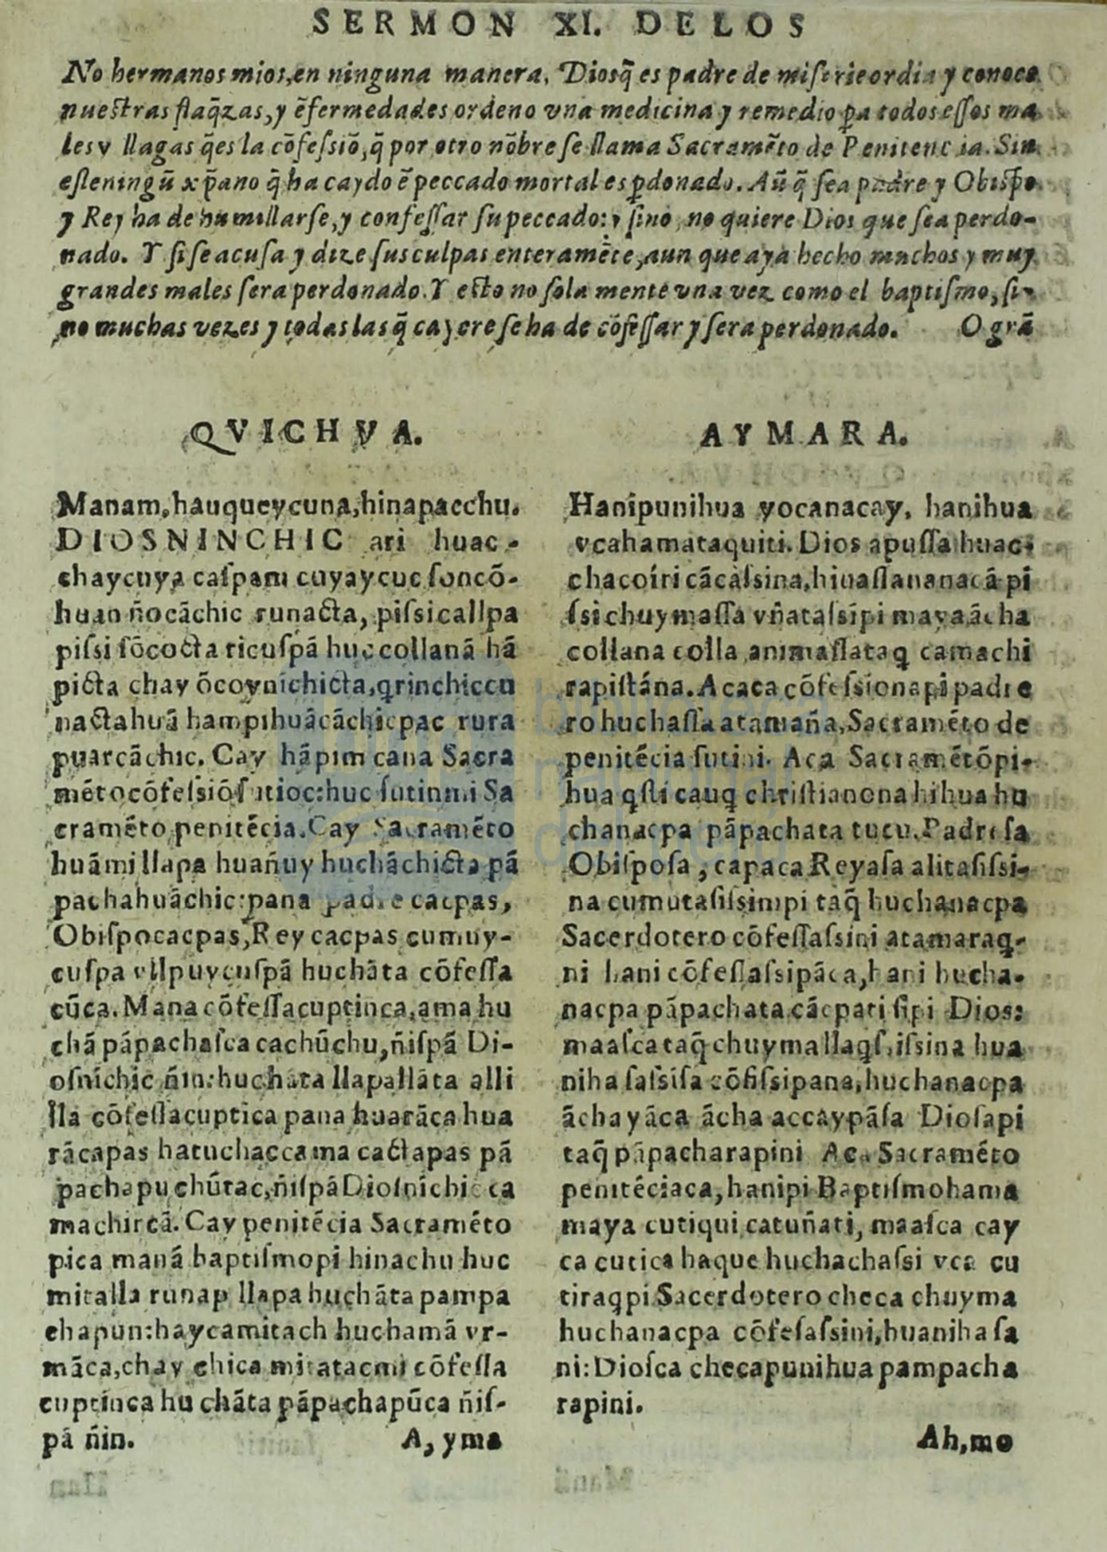 SERMON XI. DELOS
No hermanos mios, en ninguna manera. Dios q̃ es padre de misericordia y conoce
nuestras flaq̃zas, y ẽfermedades ordeno vna medicina y remedio ꝑa todos essos ma
les y llagas q̃ es la cõfessiõ, q̃ por otro nõbre se llama Sacramẽto de Penitencia. Sin
este ningũ xp̃ano q̃ ha caydo ẽ peccado mortal es ꝑdonado. Aũ q̃ sea padre y Obispo
y Rey ha de humillarse, y confessar su peccado: y sino, no quiere Dios que sea perdo-
nado. Y si se acusa y dize sus culpas enteramẽte, aun que aya hecho muchos y muy
grandes males sera perdonado. Y esto no sola mente vna vez como el baptismo, si-
no muchas vezes y todas las q̃ cayere se ha de cõfessar y sera perdonado. O grã
QVICHVA.
Manam, hauqueycuna, hinapacchu.
DIOSNINCHIC ari huac-
chaycuya caspam cuyaycuc soncõ-
huan ñocãchic runacta, pissicallpa
pissi sõcocta ricuspã huc collanã hã
picta chay õcoyníchicta, q̃rinchiccu
nactahuã hampihuãcãchicpac rura
puarcãchic. Cay hãpim cana Sacra
mẽto cõfessiõ sutioc: huc sutinmi Sa
cramẽto penitẽcia. Cay Sacramẽto
huãmi llapa huañuy huchãchicta pã
pachahuãchic: pana padre cacpas,
Obispocacpas, Rey cacpas cumuy-
cuspa vllpuycuspã huchãta cõfessa
cũca. Mana cõfessacuptinca, ama hu
chã pãpachasca cachũchu, ñispã Di-
osnĩchic ñin: huchãta llapallãta alli
lla cõfessacuptĩca pana huarãca hua
rãcapas hatuchacca ma cactapas pã
pachapuchũtac, ñispã Diosnĩchicca
machircã. Cay penitẽcia Sacramẽto
pica manã baptismopi hinachu huc
mitalla runap llapa huchãta pampa
chapun: haycamitach huchamã vr-
mãca, chay chica mitatacmi cõfessa
cuptinca huchãta pãpachapũca ñis-
pã ñin.
A, yma
AYMARA.
Hanipunihua yocanacay, hanihua
vcahamataquiti. Dios apussa huac-
chacoiri cãcassina, hiuasſananacã pi
ssi chuymassa vñatassipi maya ãcha
collana colla animasſataq̃ camachi
rapistána. Acaca cõfessionapi padre
ro huchassa atamaña, Sacramẽto de
penitẽcia sutini. Aca Sacramẽtõpi-
hua q̃sti cauq̃ christianona hihua hu
chanacpa pãpachata tucu. Padresa
Obisposa, capaca Reyasa alitasissi-
na cumutasissimpi taq̃ huchanacpa
Sacerdotero cõfessassini atamaraq̃-
ni hani cõfessassipãca, hani hucha-
nacpa pãpachata cãcpati sipi Dios:
maasca taq̃ chuyma llaq̃s, issina hua
niha sassisa cõfissipana, huchanacpa
ãcha yãca ãcha accaypãsa Diosapi
taq̃ pãpacharapini Aca Sacramẽto
penitẽciaca, hanipi Baptismohama
maya cutiqui catuñati, maasca cay
ca cutica haque huchachassi vca cu
tiraq̃pi Sacerdotero checa chuyma
huchanacpa cõfesassini, huaniha sa
ni: Diosca checapunihua pampacha
rapini.
Ah, mo